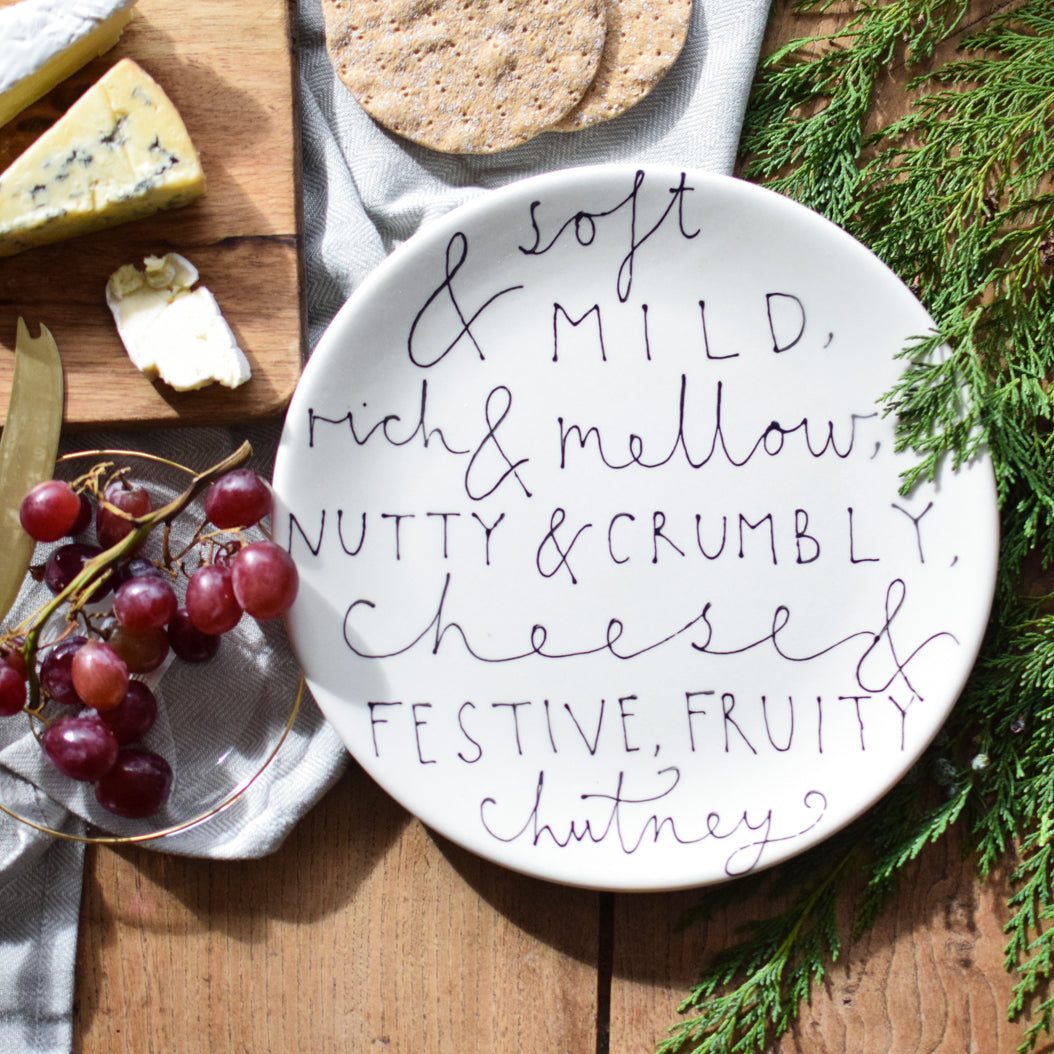 soft
& MILD,
rich & mellow,
NUTTY & CRUMBLY,
cheese &
FESTIVE, FRUITY
chutney